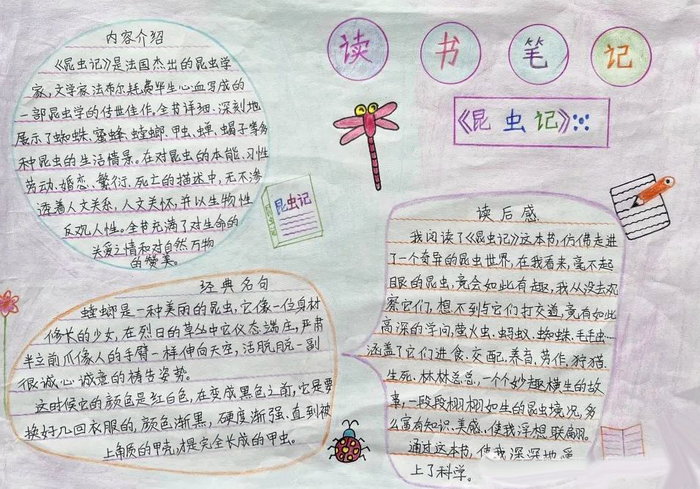 读书笔记
《昆虫记》
内容介绍
《昆虫记》是法国杰出的昆虫学
家,文学家法布尔耗费毕生心血写成的
一部昆虫学的传世佳作,全书详细、深刻地
展示了蜘蛛、蜜蜂、螳螂、甲虫、蝉、蝎子等多
种昆虫的生活情景。在对昆虫的本能、习性
劳动、婚恋、繁衍、死亡的描述中,无不渗
透着人文关系,人文关怀,并以生物性
反观人性。全书充满了对生命的
关爱之情和对自然万物
的赞美。
昆虫记
经典名句
螳螂是一种美丽的昆虫,它像一位身材
修长的少女,在烈日的草丛中它仪态端庄,严肃
半立前爪像人的手臂一样伸向天空,活脱脱一副
很诚心诚意的祷告姿势。
这时候它的颜色是红白色,在变成黑色之前,它是要
换好几回衣服的,颜色渐黑,硬度渐强、直到被
上角质的甲壳,才是完全长成的甲虫。
读后感
我阅读了《昆虫记》这本书,仿佛走进
了一个奇异的昆虫世界,在我看来,毫不起
眼的昆虫,竟会如此有趣,我从没去观
察它们,想不到与它们打交道,竟有如此
高深的学问,萤火虫、蚂蚁、蜘蛛、毛毛虫…
涵盖了它们进食、交配、养育、劳作、狩猎、
生死、林林总总,一个个妙趣横生的故
事,一段段栩栩如生的昆虫境况,多
么富有知识、美感、使我浮想联翩。
通过这本书,使我深深地爱
上了科学。